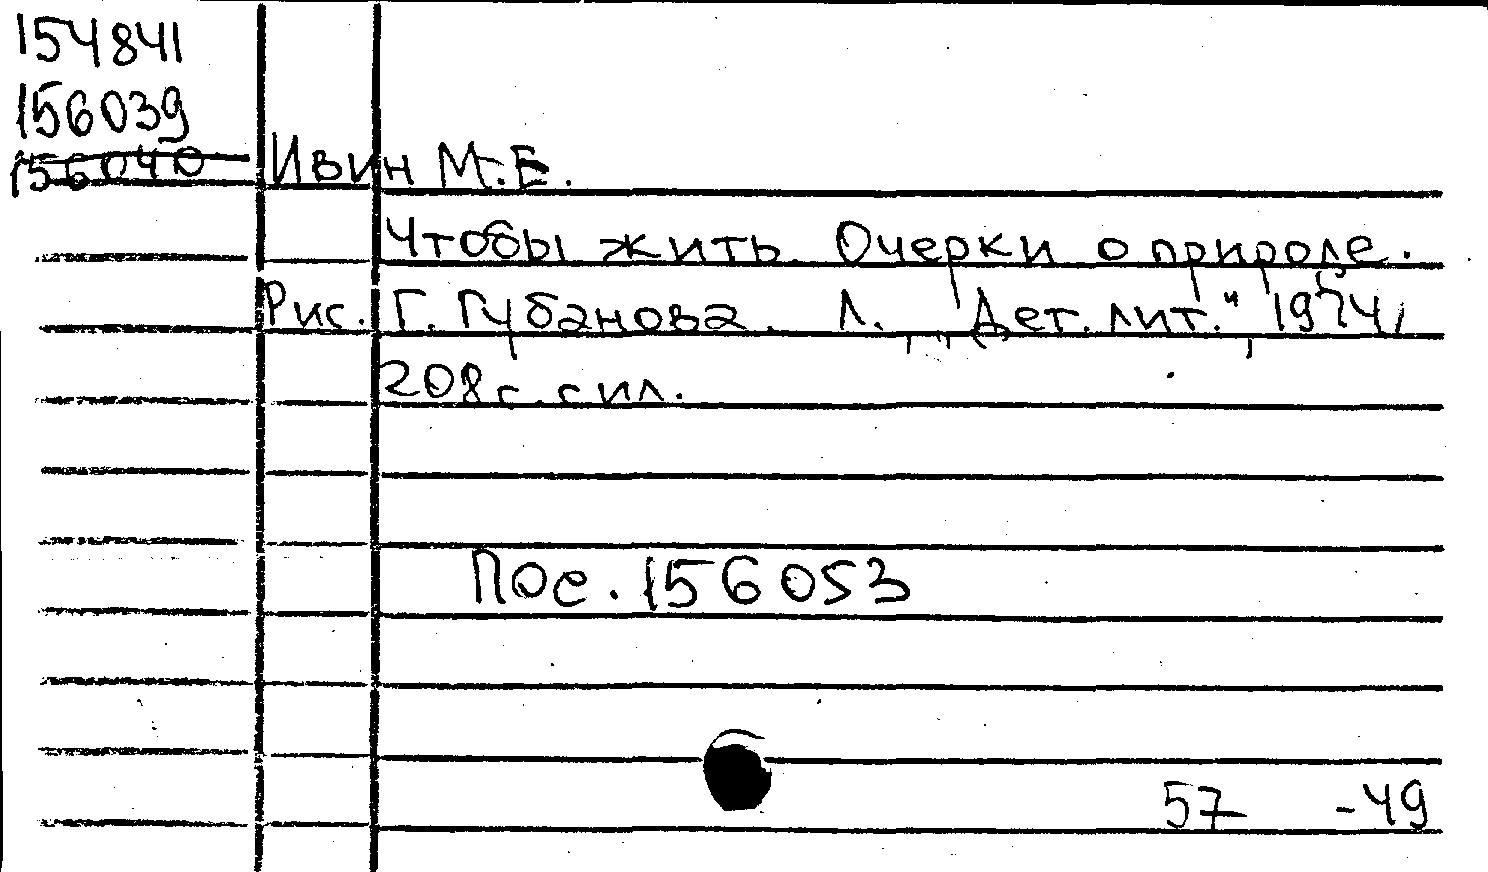 154841
156039
156040
Ивин М.Е.
Чтобы жить. Очерки о природе.
Рис. Г. Губанова. Л. „Дет. лит.“, 1974,
208 с. с ил.
Пое. 156053
57 -49